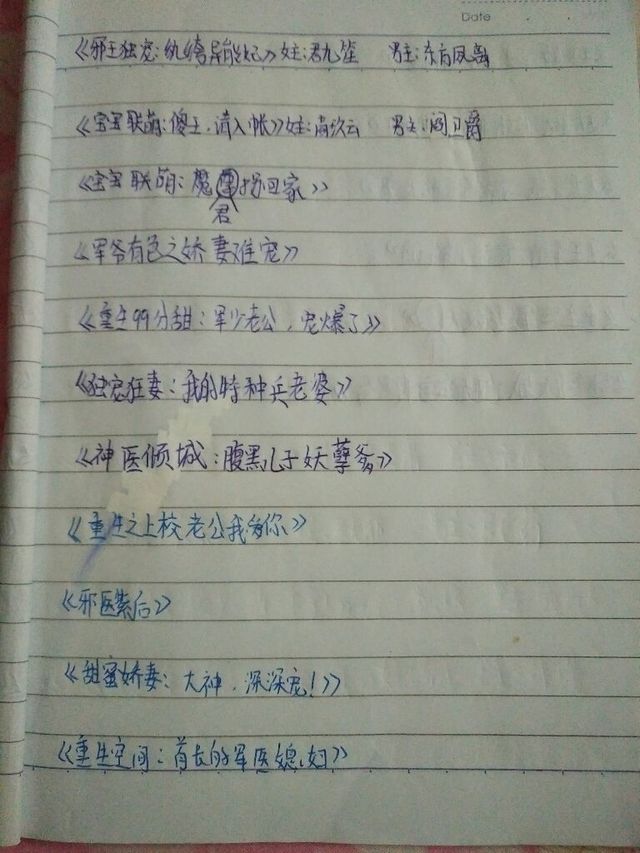 Date
《邪王独宠:纨绔异能妃》女主:君九笙 男主:东方凤离
《宝宝联萌:傻王,请入帐》女主:南玖云 男主:阎卫爵
《宝宝联萌:魔尊拐回家》
君
《军爷有色之娇妻难宠》
《重生99分甜:军少老公,宠爆了》
《独宠狂妻:我的特种兵老婆》
《神医倾城:腹黑儿子妖孽爹》
《重生之上校老公我爱你》
《邪医紫后》
《甜蜜娇妻:大神,深深宠!》
《重生空间:首长的军医媳妇》